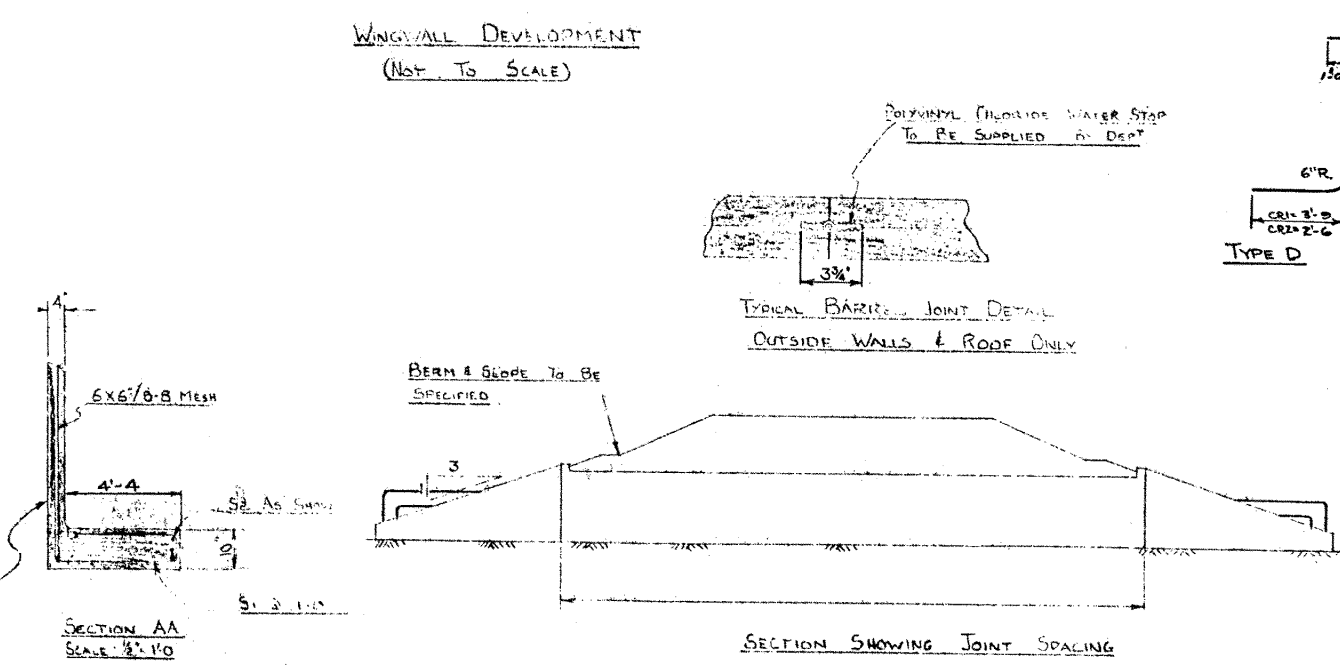 WINGWALL DEVELOPMENT
(NOT TO SCALE)
POLYVINYL CHLORIDE WATER STOP
TO BE SUPPLIED BY DEPT
6"R.
CR1= 3'-9
CR2= 2'-6
TYPE D
3¾"
TYPICAL BARREL JOINT DETAIL
OUTSIDE WALLS & ROOF ONLY
4"
6X6"/8-8 MESH
4'-4
AS SHOWN
SECTION AA
SCALE ½"=1'0
BERM & SLOPE TO BE
SPECIFIED
3
1
SECTION SHOWING JOINT SPACING